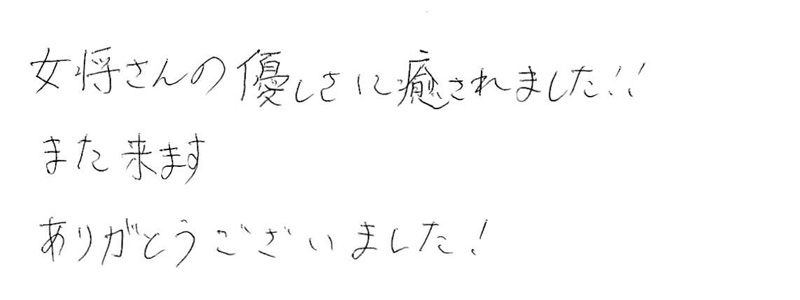 女将さんの優しさに癒されました!!
また来ます
ありがとうございました!